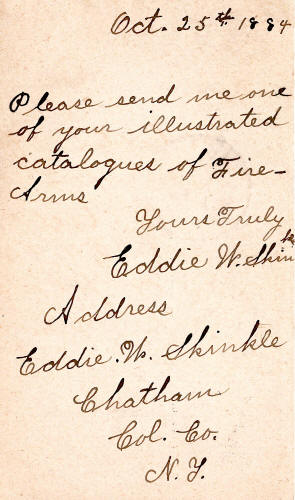 Oct. 25th 1884
Please send me one
of your illustrated
catalogues of Fire-
Arms
Yours Truly
Eddie W. Skinkle
Address
Eddie. W. Skinkle
Chatham
Col. Co.
N. Y.